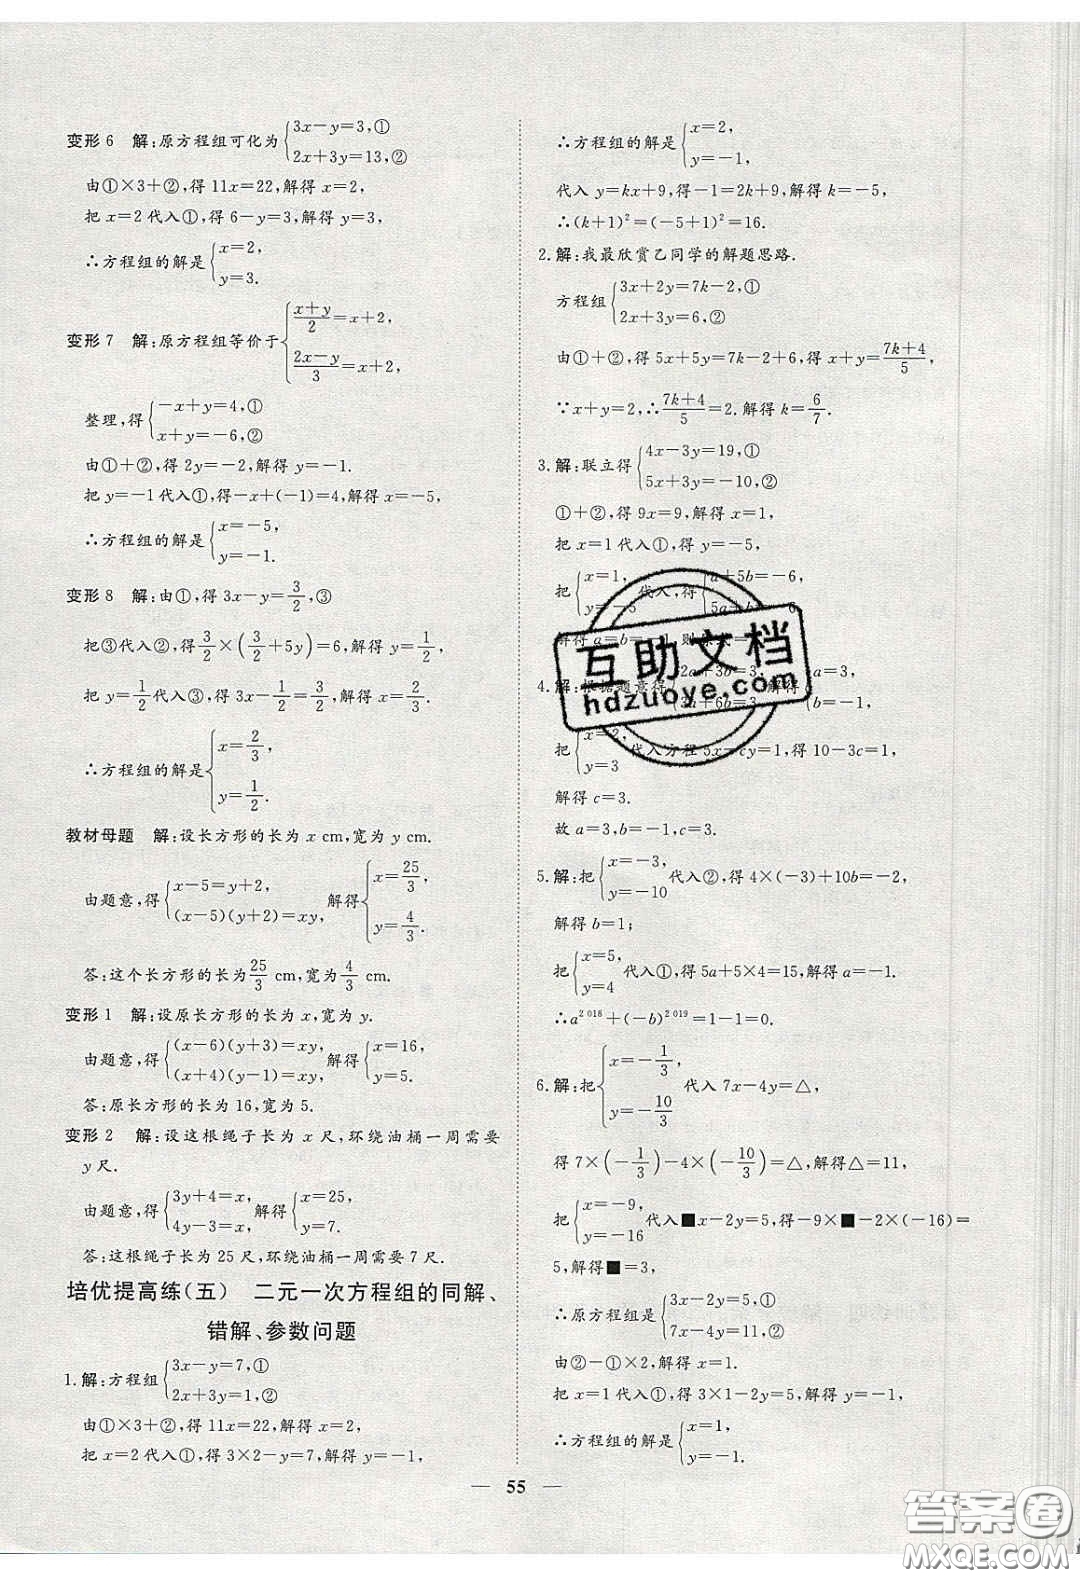 变形6 解:原方程组可化为{3x-y=3,①
2x+3y=13,②
由①×3+②,得11x=22,解得x=2,
把x=2代入①,得6-y=3,解得y=3,
∴方程组的解是{x=2,
y=3.
变形7 解:原方程组等价于{(x+y)/2=x+2,
(2x-y)/3=x+2,
整理,得{-x+y=4,①
x+y=-6,②
由①+②,得2y=-2,解得y=-1.
把y=-1代入①,得-x+(-1)=4,解得x=-5,
∴方程组的解是{x=-5,
y=-1.
变形8 解:由①,得3x-y=3/2,③
把③代入②,得3/2×(3/2+5y)=6,解得y=1/2,
把y=1/2代入③,得3x-1/2=3/2,解得x=2/3,
∴方程组的解是{x=2/3,
y=1/2.
教材母题 解:设长方形的长为x cm,宽为y cm.
由题意,得{x-5=y+2,
(x-5)(y+2)=xy,
解得{x=25/3,
y=4/3.
答:这个长方形的长为25/3 cm,宽为4/3 cm.
变形1 解:设原长方形的长为x,宽为y.
由题意,得{(x-6)(y+3)=xy,
(x+4)(y-1)=xy,
解得{x=16,
y=5.
答:原长方形的长为16,宽为5.
变形2 解:设这根绳子长为x尺,环绕油桶一周需要
y尺.
由题意,得{3y+4=x,
4y-3=x,
解得{x=25,
y=7.
答:这根绳子长为25尺,环绕油桶一周需要7尺.
培优提高练(五) 二元一次方程组的同解、
错解、参数问题
1.解:方程组{3x-y=7,①
2x+3y=1,②
由①×3+②,得11x=22,解得x=2,
把x=2代入①,得3×2-y=7,解得y=-1,
∴方程组的解是{x=2,
y=-1,
代入y=kx+9,得-1=2k+9,解得k=-5,
∴(k+1)²=(-5+1)²=16.
2.解:我最欣赏乙同学的解题思路.
方程组{3x+2y=7k-2,①
2x+3y=6,②
由①+②,得5x+5y=7k-2+6,得x+y=(7k+4)/5,
∵x+y=2,∴(7k+4)/5=2.解得k=6/7.
3.解:联立得{4x-3y=19,①
5x+3y=-10,②
①+②,得9x=9,解得x=1,
把x=1代入①,得y=-5,
把{x=1,
y=-5
代入,得{a+5b=-6,
5a+b=-6
解得a=b=-1,则
4.解:根据题意得{2a+3b=3,
3a+6b=3,
解得{a=3,
b=-1,
把{x=2,
y=3
代入方程5x-cy=1,得10-3c=1,
解得c=3.
故a=3,b=-1,c=3.
5.解:把{x=-3,
y=-10
代入②,得4×(-3)+10b=-2,
解得b=1;
把{x=5,
y=4
代入①,得5a+5×4=15,解得a=-1.
∴a²⁰¹⁸+(-b)²⁰¹⁹=1-1=0.
6.解:把{x=-1/3,
y=-10/3
代入7x-4y=△,
得7×(-1/3)-4×(-10/3)=△,解得△=11,
把{x=-9,
y=-16
代入■x-2y=5,得-9×■-2×(-16)=
5,解得■=3,
∴原方程组{3x-2y=5,①
7x-4y=11;②
由②-①×2,解得x=1.
把x=1代入①,得3×1-2y=5,解得y=-1,
∴方程组的解是{x=1,
y=-1.
— 55 —
互助文档
hdzuoye.com
答案卷
MXQE.COM